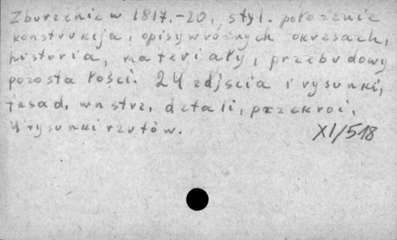 Zburzenie w 1817.-20, styl. położenie
konstrukcja, opisy w różnych okresach,
historia, materiały, przebudowy
pozostałości. 24 zdjęcia i rysunki,
fasad, wnętrz, detali, przekroi,
4 rysunki rzutów.
XI/518